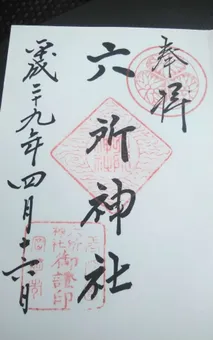 奉拝
六所神社
平成二十九年四月十六日
御證印